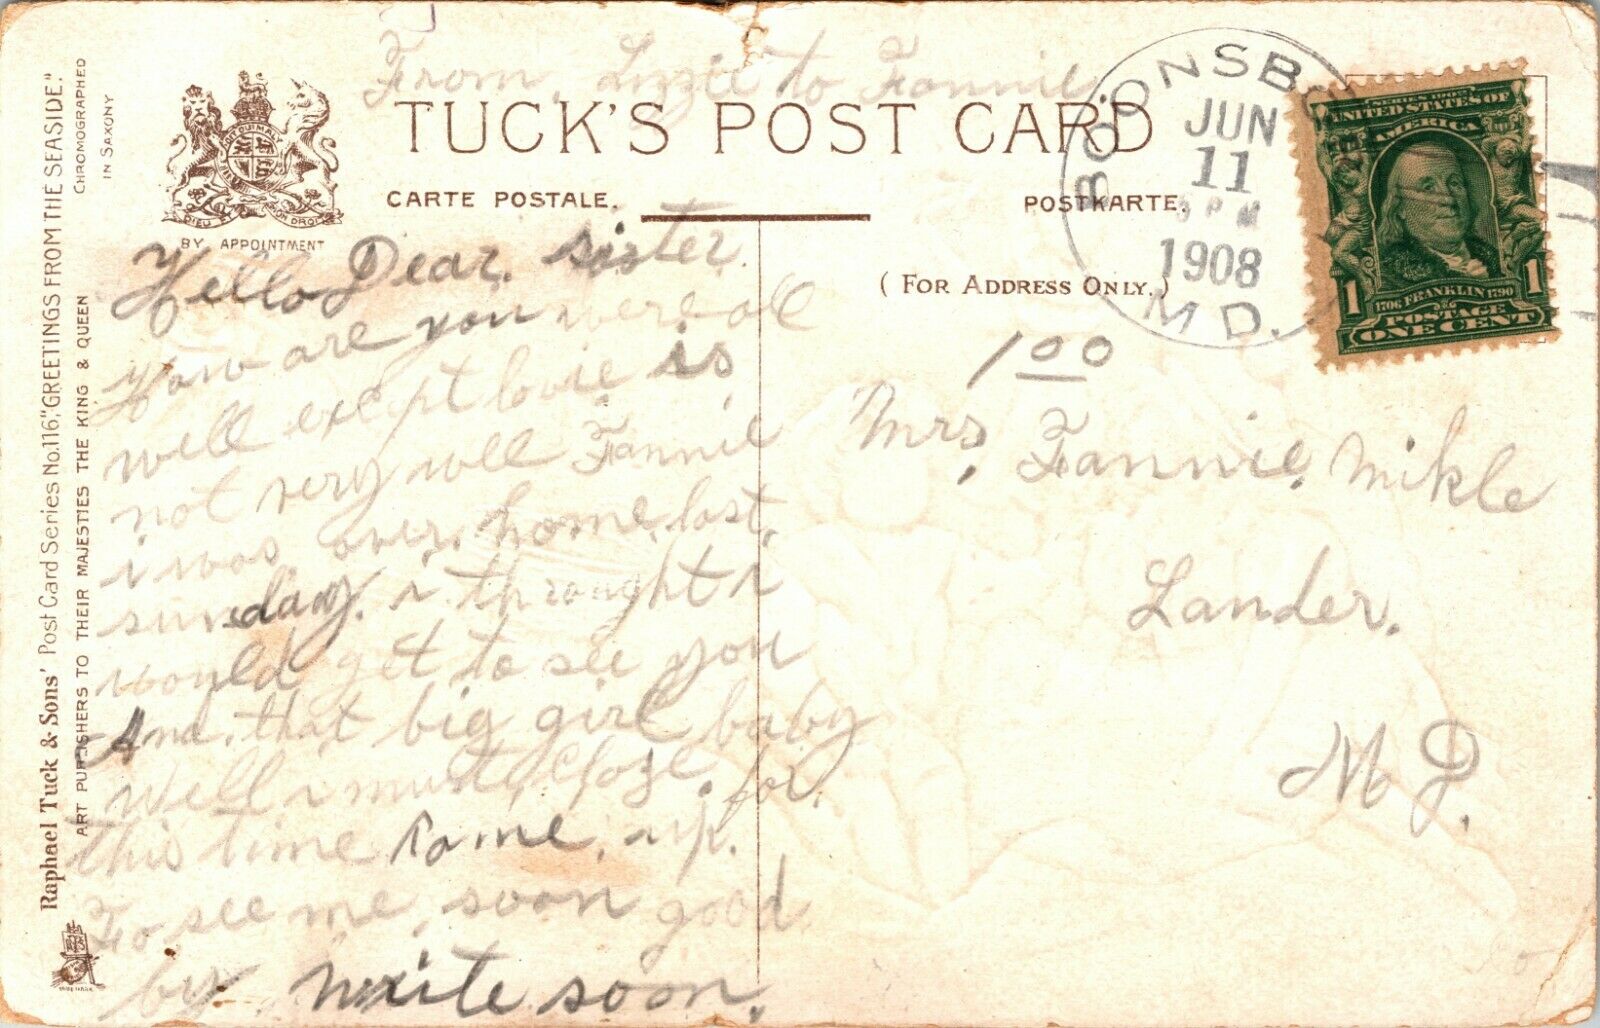 From, Lizzie to Fannie
TUCK'S POST CARD
CARTE POSTALE.
POSTKARTE.
BY APPOINTMENT
(FOR ADDRESS ONLY.)
DIEU ET MON DROIT
BOONSBORO
JUN
11
PM
1908
MD.
SERIES 1902
UNITED STATES OF
AMERICA
1706 FRANKLIN 1790
POSTAGE
1 ONE CENT 1
Hello Dear. sister.
How are you were all
well except is
not very well Fannie
i was over. home. last.
sunday. i throught i
would get to see you
And. that big girl baby
Well i must close. for.
this time Come. up.
To see me, soon good
by. write soon.
1.00
Mrs, Fannie. Mikle
Lander.
Md.
80
Raphael Tuck & Sons' Post Card Series No. 116, "GREETINGS FROM THE SEASIDE."
ART PUBLISHERS TO THEIR MAJESTIES THE KING & QUEEN
CHROMOGRAPHED
IN SAXONY
TRADE MARK